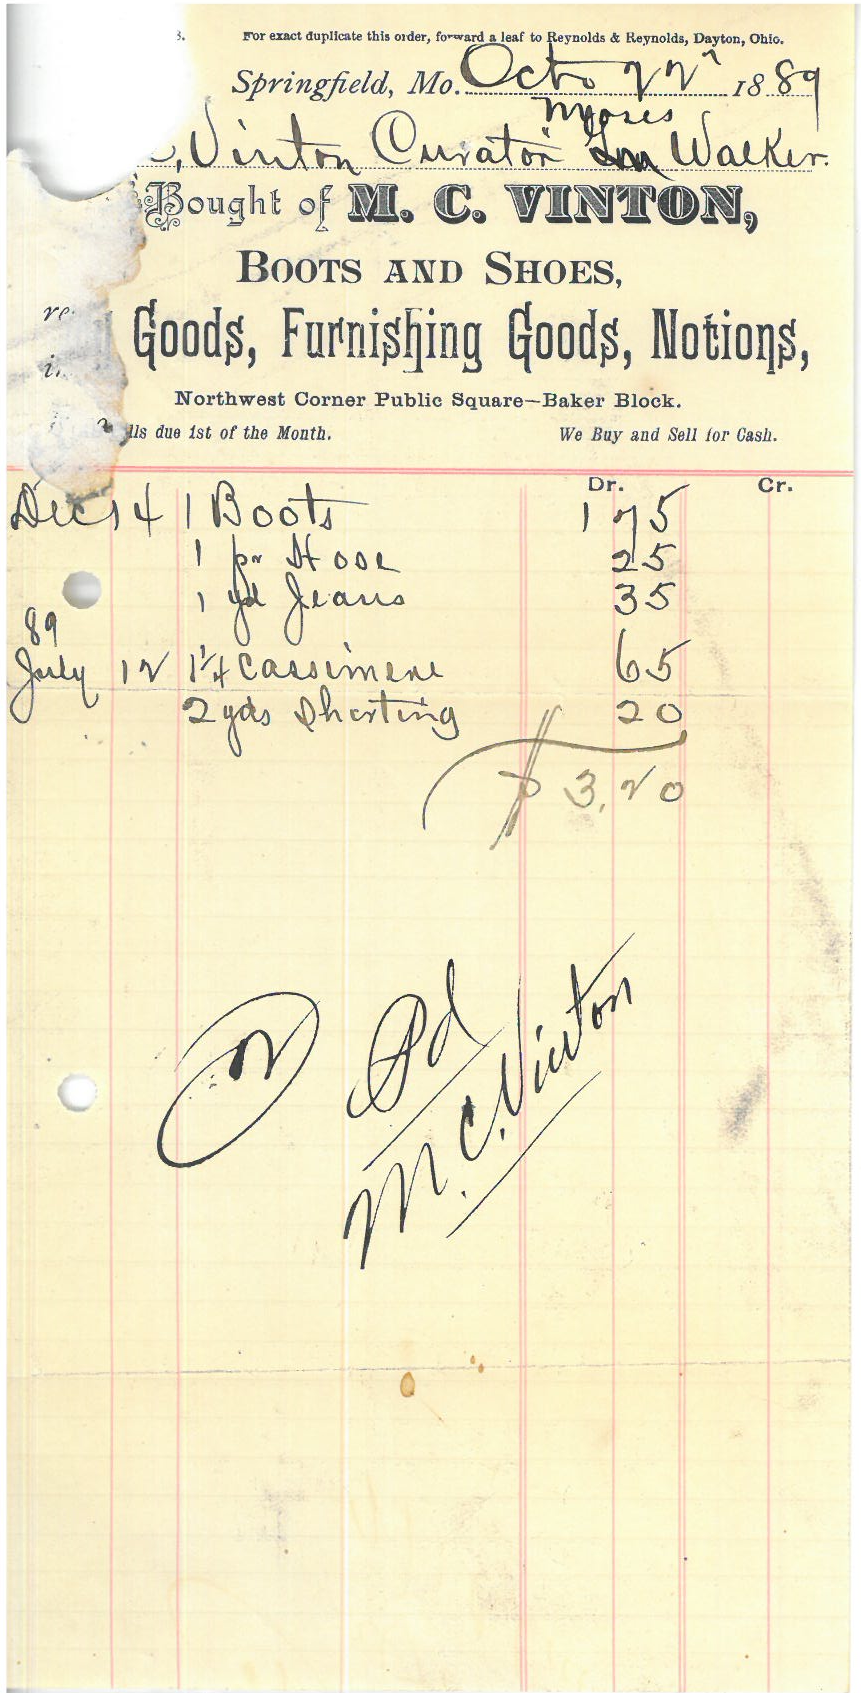 For exact duplicate this order, forward a leaf to Reynolds & Reynolds, Dayton, Ohio.
Springfield, Mo. Octo 22" 1889
Moses
C, Vinton Curator Walker.
Bought of M. C. VINTON,
BOOTS AND SHOES,
Goods, Furnishing Goods, Notions,
Northwest Corner Public Square—Baker Block.
lls due 1st of the Month. We Buy and Sell for Cash.
Dr. Cr.
Dec 14 1 Boots 1 75
1 pr Hose 25
1 yd Jeans 35
89
July 12 1 1/4 Cassimere 65
2 yds Sherting 20
$ 3.20
2
Pd
M. C. Vinton